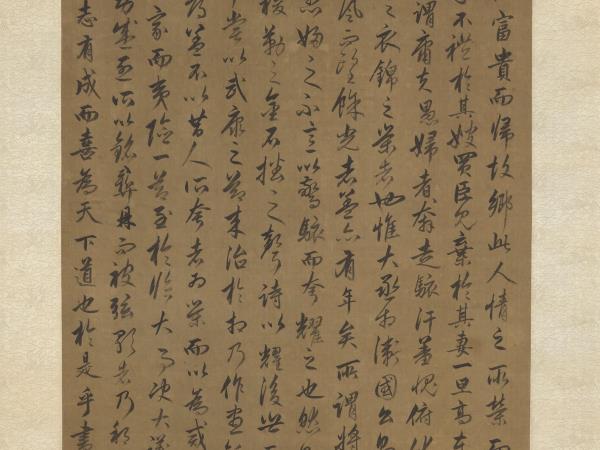 富貴而歸故鄉此人情之所榮而
不禮於其嫂買臣見棄於其妻一旦高車
謂庸夫愚婦者奔走駭汗羞愧俯伏
之衣錦之榮者也惟大丞相衛國公
風而望餘光者蓋亦有年矣所謂將
愚婦之不意以驚駭而夸耀之也然
勒之金石播之聲詩以耀後世
嘗以武康之節來治於相乃作晝
蓋不以昔人所夸者為榮而以為戒
家而夷險一節至於臨大事決大議
盛烈所以銘彝鼎而被弦歌者乃邦
志有成而喜為天下道也於是乎書